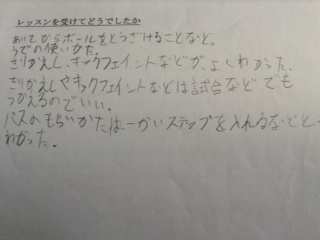 レッスンを受けてどうでしたか
あいてからボールをとうざけることなど。
うでの使いかた。
きりかえし、キックフェイントなどが、よくわかった。
きりかえしやキックフェイントなどは試合などでも
つかえるのでいい。
パスのもらいかたは、一かいステップを入れるなどと
わかった。